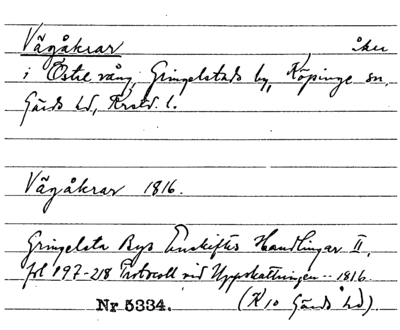 Vägåkrar åker
i Östre vång, Gringelstads by, Köpinge sn,
Gärds hd, Krstd. l.
Vägåkrar 1816.
Gringelsta Bys Enskiftes Handlingar II,
fol 197-218 Protocoll vid Uppskattningen -- 1816.
Nr 5334. (K 10 Gärds hd).